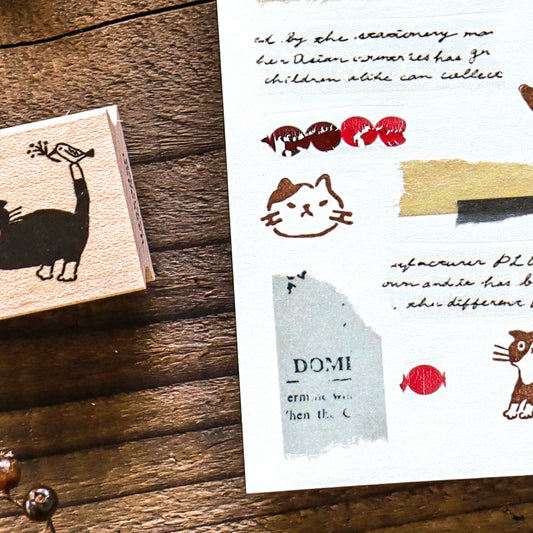 by the stationery
Asian countries has
children alike can collect
manufacturer PL
own and it has
the different
DOMI
ermine wi
hen the C